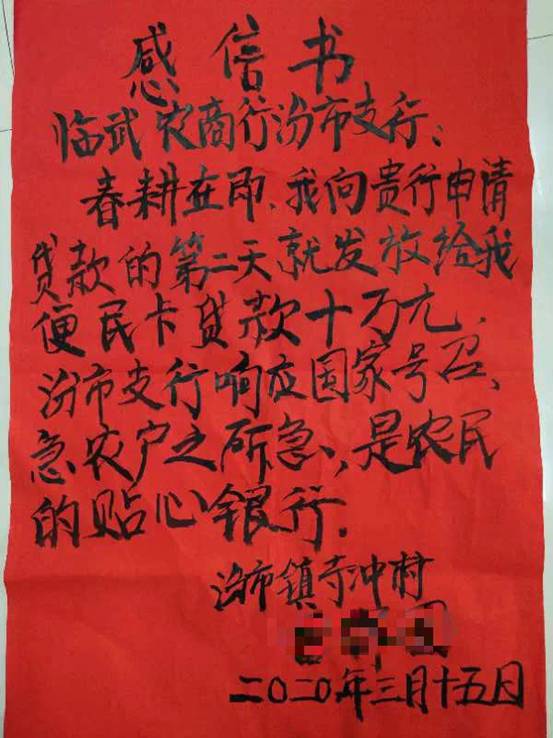 感信书
临武农商行汾市支行：
春耕在即，我向贵行申请
贷款的第二天就发放给我
便民卡贷款十万元，
汾市支行响应国家号召、
急农户之所急，是农民
的贴心银行。
汾市镇寺冲村
二〇二〇年三月十五日